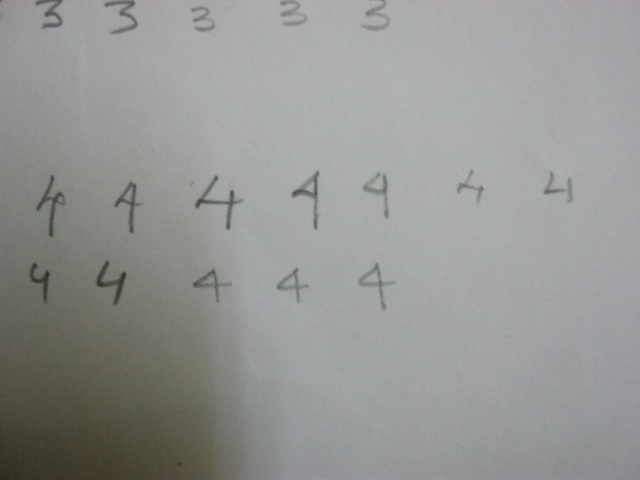 3 3 3 3 3
4 4 4 4 4 4 4
4 4 4 4 4